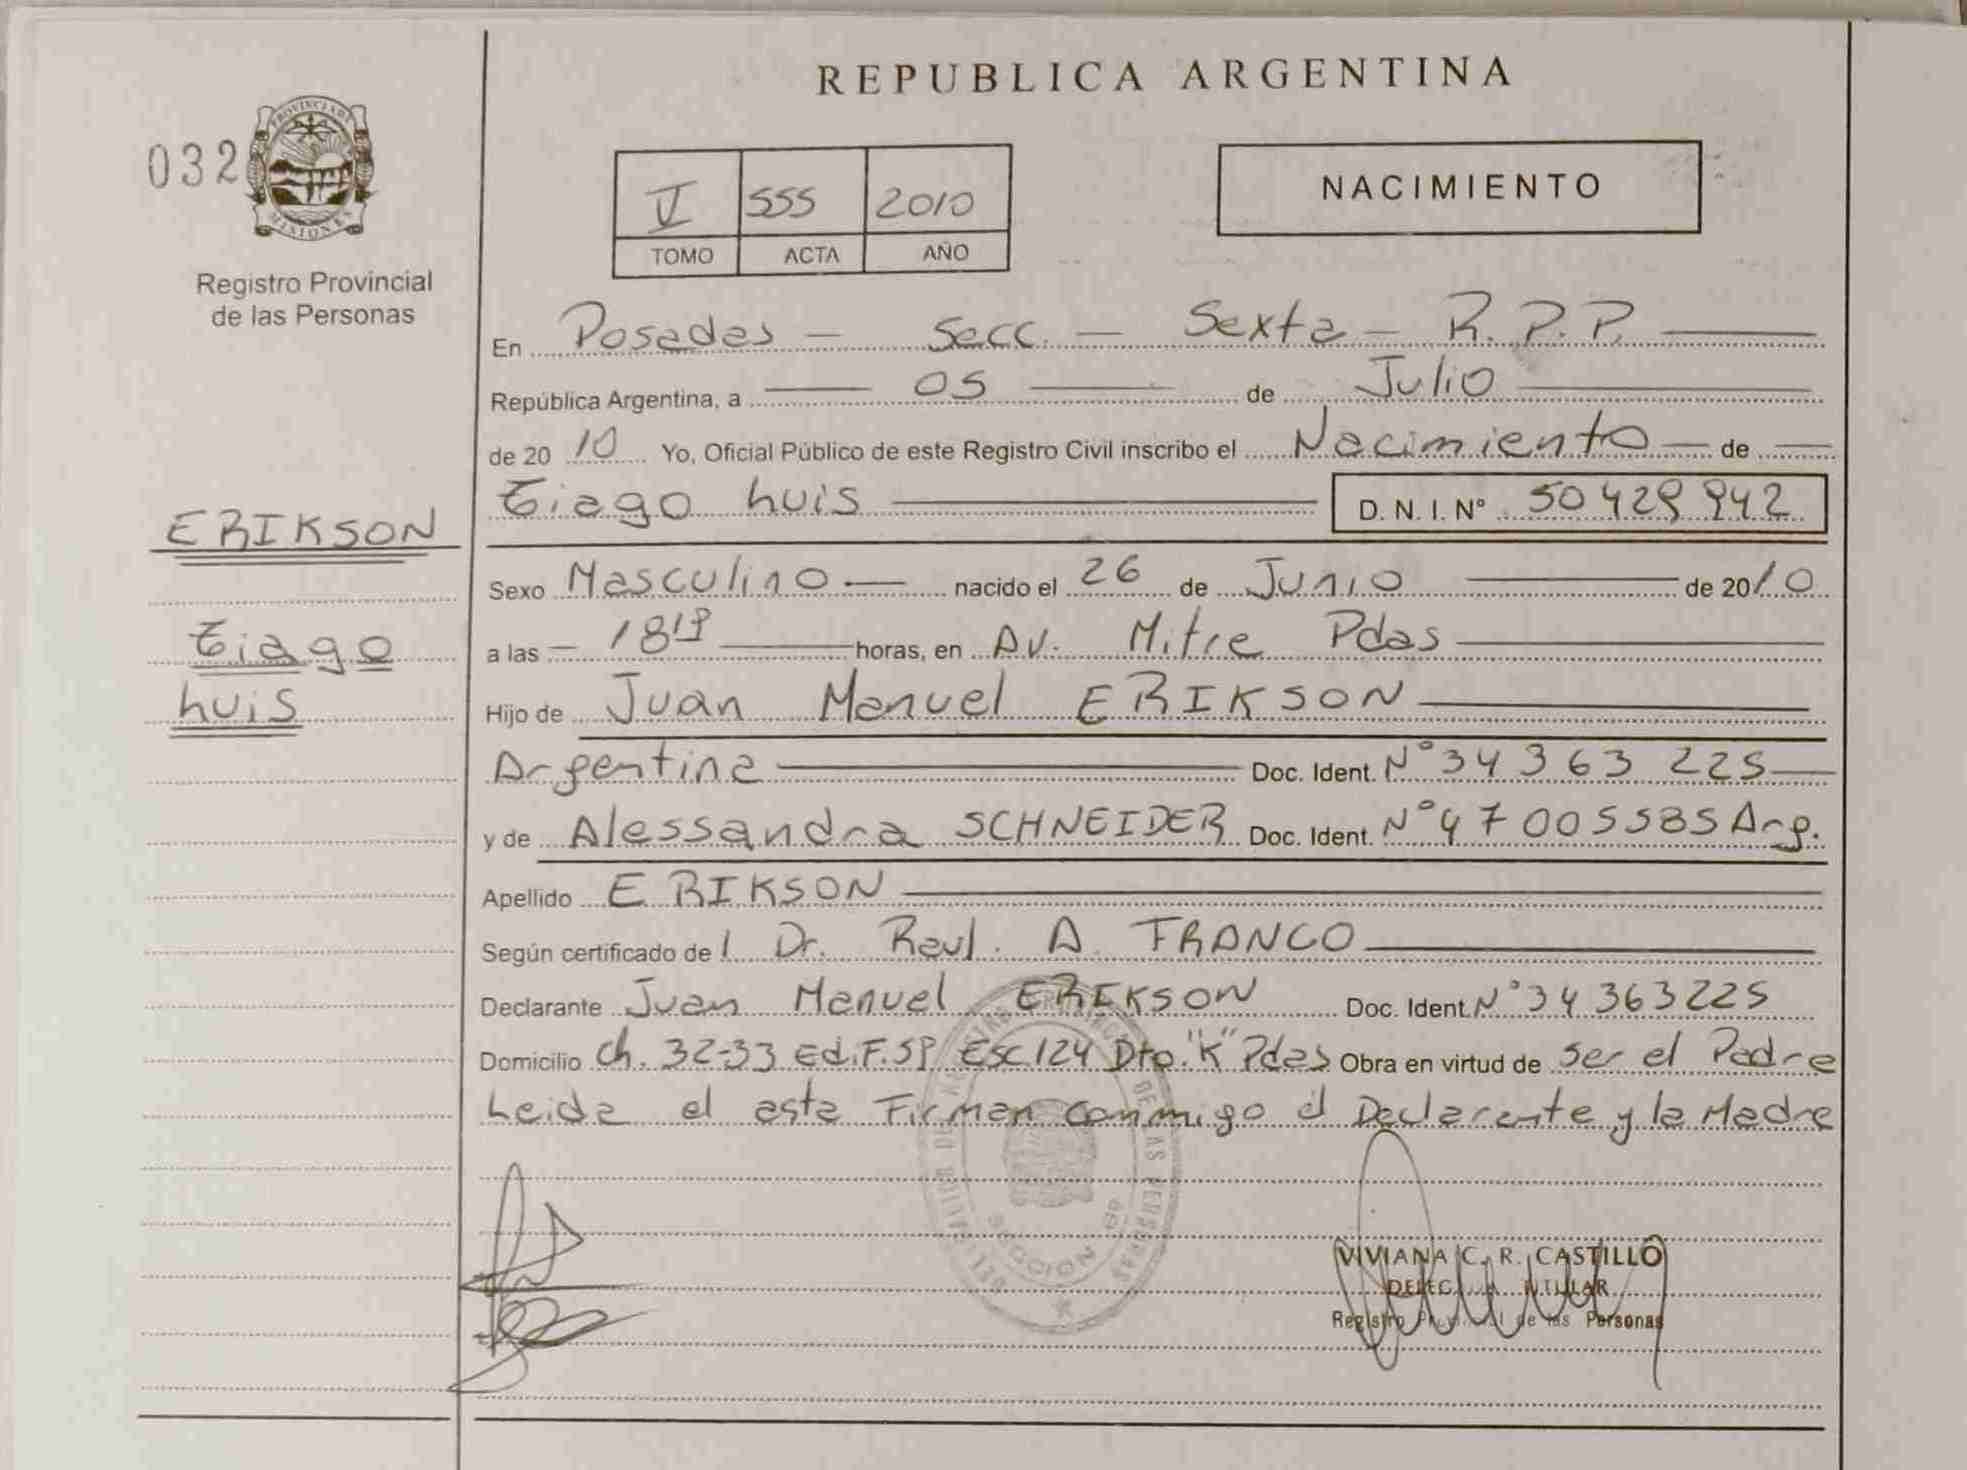 REPUBLICA ARGENTINA
032
PROVINCIA DE
MISIONES
Registro Provincial
de las Personas
V 555 2010
TOMO ACTA AÑO
NACIMIENTO
En Posadas - Secc. - Sexta - R.P.P.
República Argentina, a 05 de Julio
de 2010 Yo, Oficial Público de este Registro Civil inscribo el Nacimiento de
Tiago Luis D. N. I. N° 50 429 942
ERIKSON
Tiago
Luis
Sexo Masculino nacido el 26 de Junio de 2010
a las 18 19 horas, en AV. Mitre Pdas
Hijo de Juan Manuel ERIKSON
Argentina Doc. Ident. N° 34 363 225
y de Alessandra SCHNEIDER Doc. Ident. N° 47 005585 Arg.
Apellido ERIKSON
Según certificado del Dr. Raul. A. FRANCO
Declarante Juan Manuel ERIKSON Doc. Ident. N° 34 363225
Domicilio Ch. 32-33 Ed. F. 5P ESC 124 Dto. "K" Pdas Obra en virtud de ser el Padre
Leida el esta Firman conmigo el Declarante, y la Madre
SECCION
VIVIANA C. R. CASTILLO
DELEGADA TITULAR
Registro Provincial de las Personas